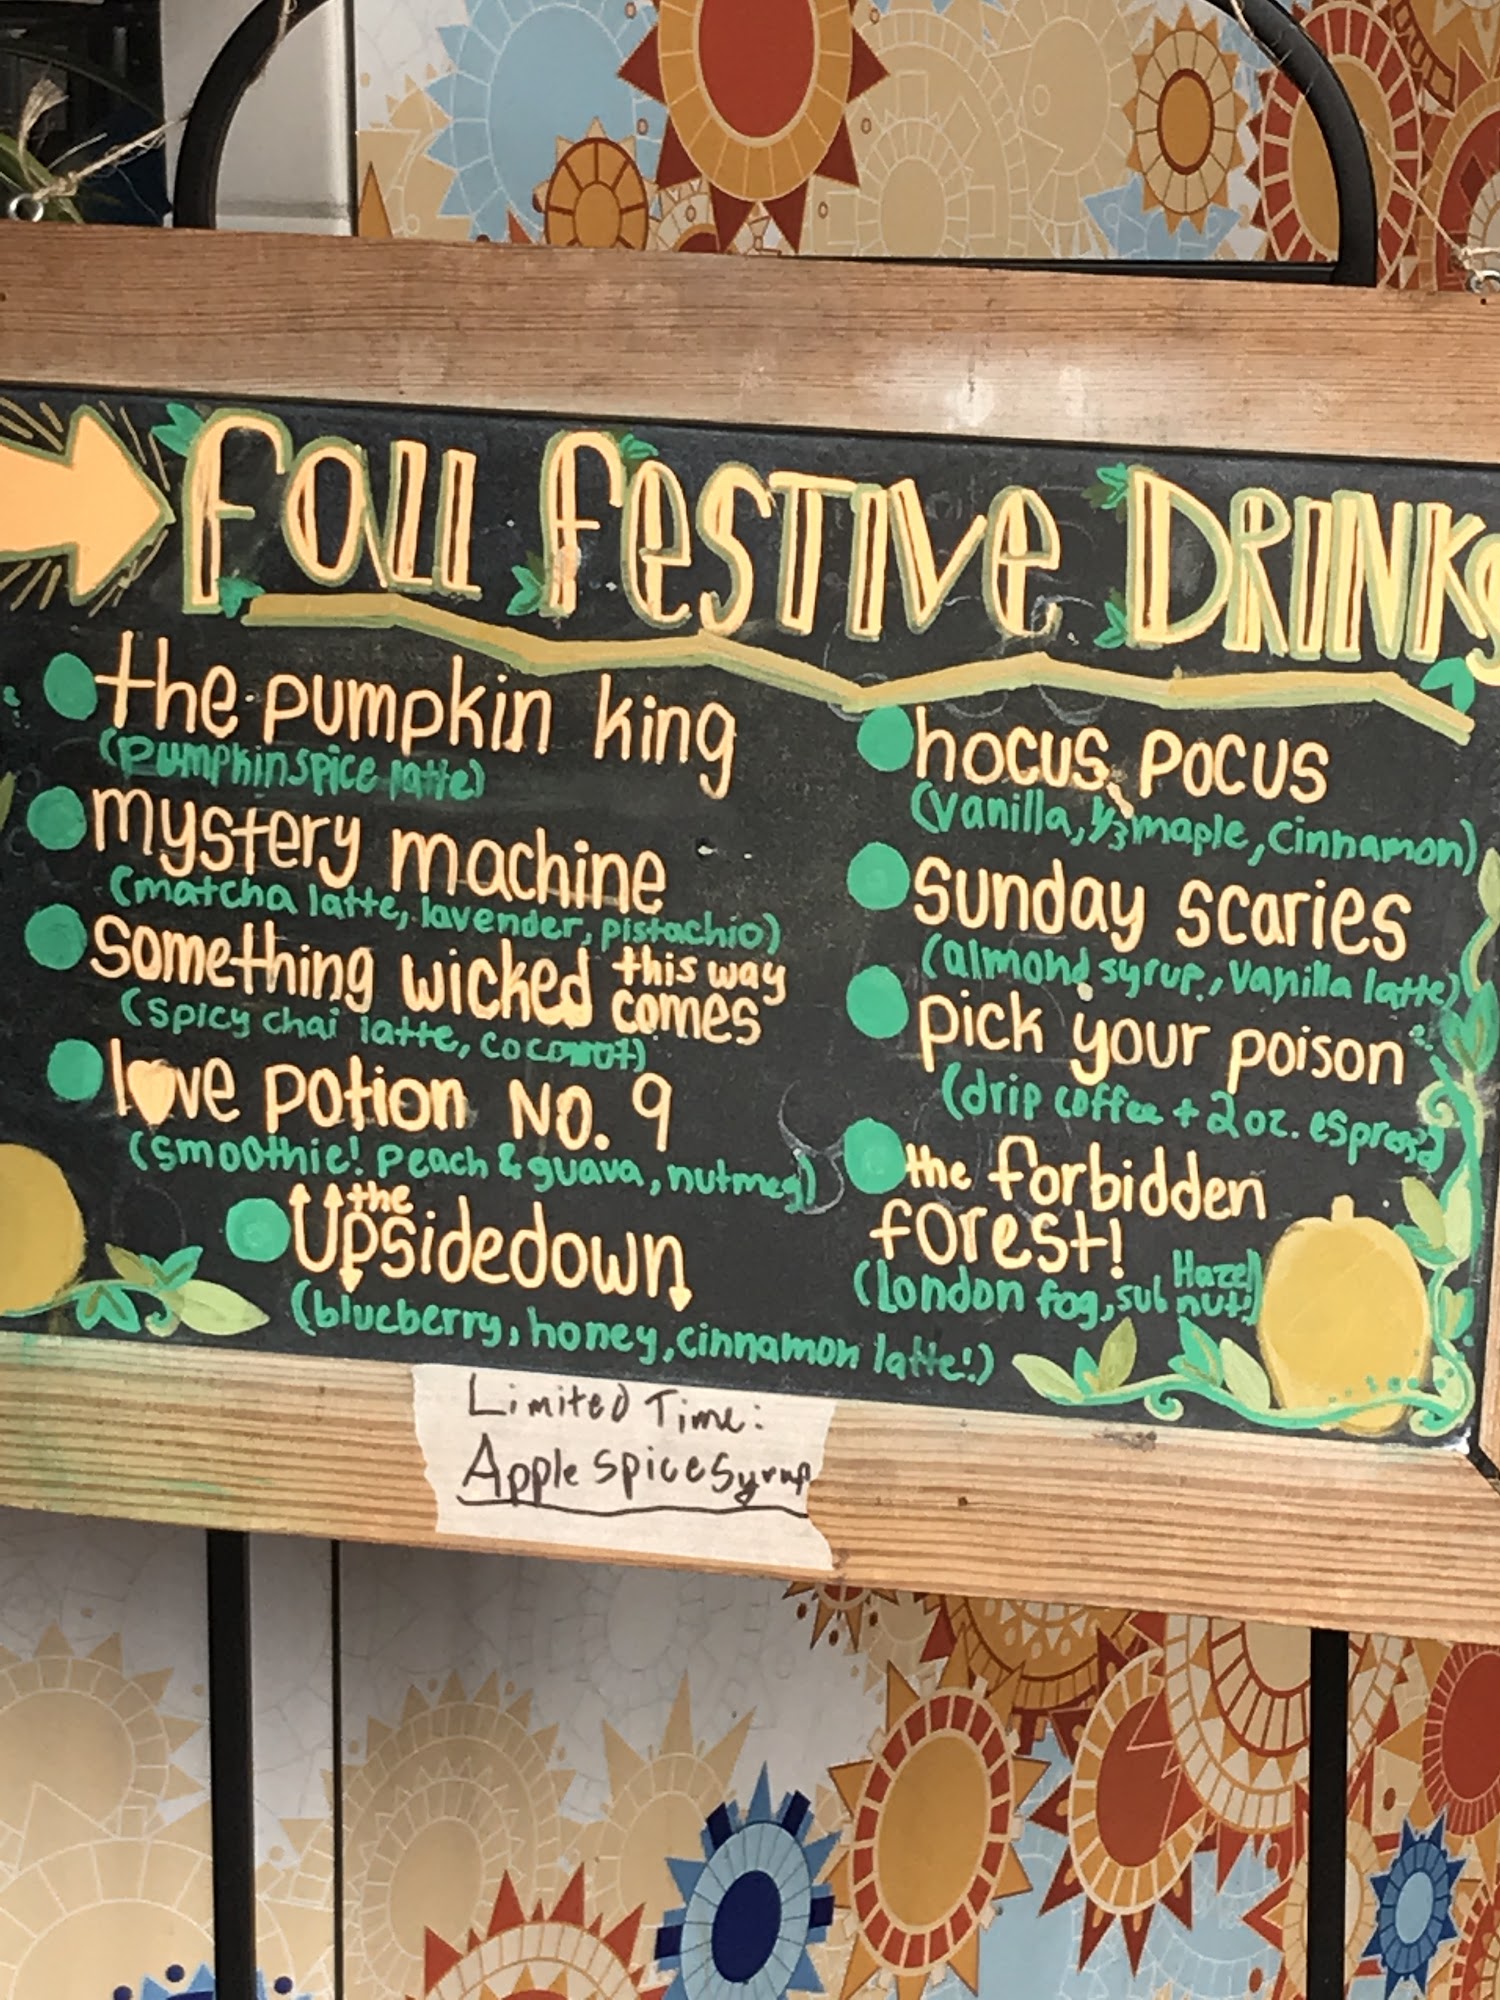 Fall Festive Drinks
the pumpkin king
(pumpkin spice latte)
mystery machine
(matcha latte, lavender, pistachio)
something wicked this way comes
(spicy chai latte, coconut)
love potion no. 9
(smoothie! peach & guava, nutmeg)
the Upsidedown
(blueberry, honey, cinnamon latte!)
hocus pocus
(vanilla, 1/3 maple, cinnamon)
sunday scaries
(almond syrup, vanilla latte)
pick your poison
(drip coffee + 2oz. espresso)
the forbidden
forest!
(London fog, sub Hazelnut!)
Limited Time:
Apple Spice Syrup